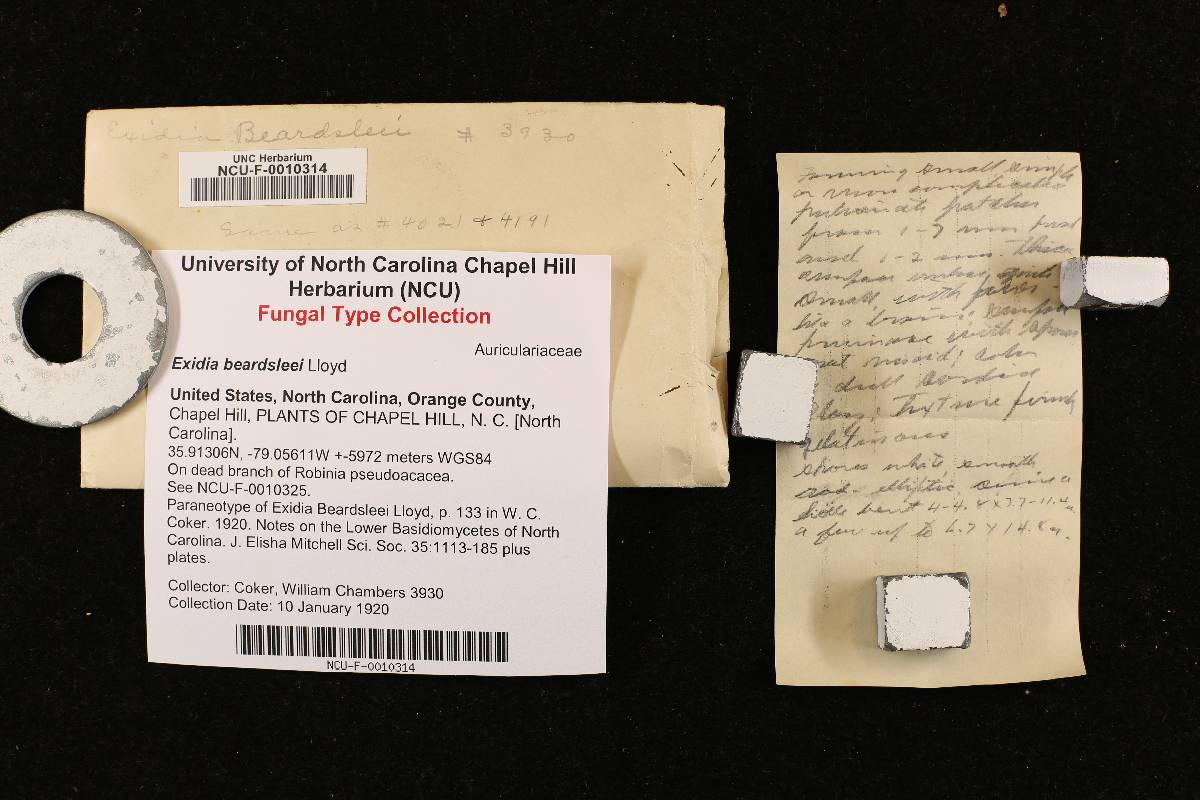 Exidia Beardsleei # 3930
UNC Herbarium
NCU-F-0010314
Same as # 4021 & 4191
University of North Carolina Chapel Hill
Herbarium (NCU)
Fungal Type Collection
Auriculariaceae
Exidia beardsleei Lloyd
United States, North Carolina, Orange County,
Chapel Hill, PLANTS OF CHAPEL HILL, N. C. [North
Carolina].
35.91306N, -79.05611W +-5972 meters WGS84
On dead branch of Robinia pseudoacacea.
See NCU-F-0010325.
Paraneotype of Exidia Beardsleei Lloyd, p. 133 in W. C.
Coker. 1920. Notes on the Lower Basidiomycetes of North
Carolina. J. Elisha Mitchell Sci. Soc. 35:1113-185 plus
plates.
Collector: Coker, William Chambers 3930
Collection Date: 10 January 1920
NCU-F-0010314
Forming small, simple
or more complicated
pulvinate patches
from
and 1-2 mm. thick
small with
like a brain,
pruinose with spores
color
dull
Texture firmly
gelatinous
spores white, smooth
rod-elliptic
bent 4-4.8 x 7.7-11.4
a few up to 6.7 x 14.8 u.